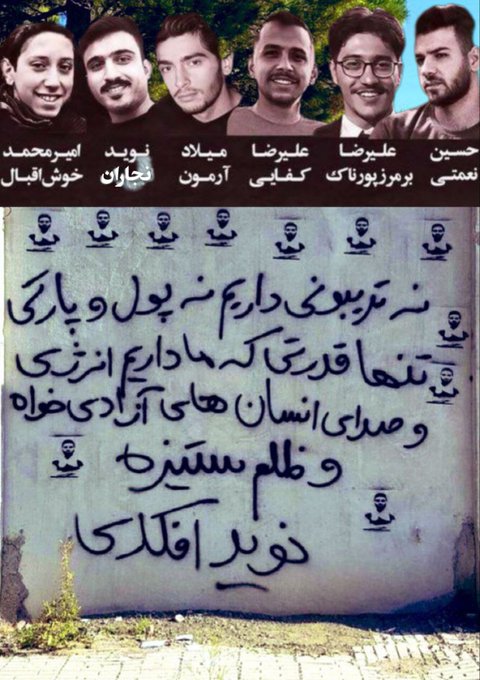 امیرمحمد خوش‌اقبال
نوید نجاران
میلاد آرمون
علیرضا کفایی
علیرضا برمرزپورناک
حسین نعمتی
نه تریبونی داریم نه پول و پارتی
تنها قدرتی که ما داریم انرژی
و صدای انسان های آزادی خواه
و ظلم ستیزه
نوید افکاری